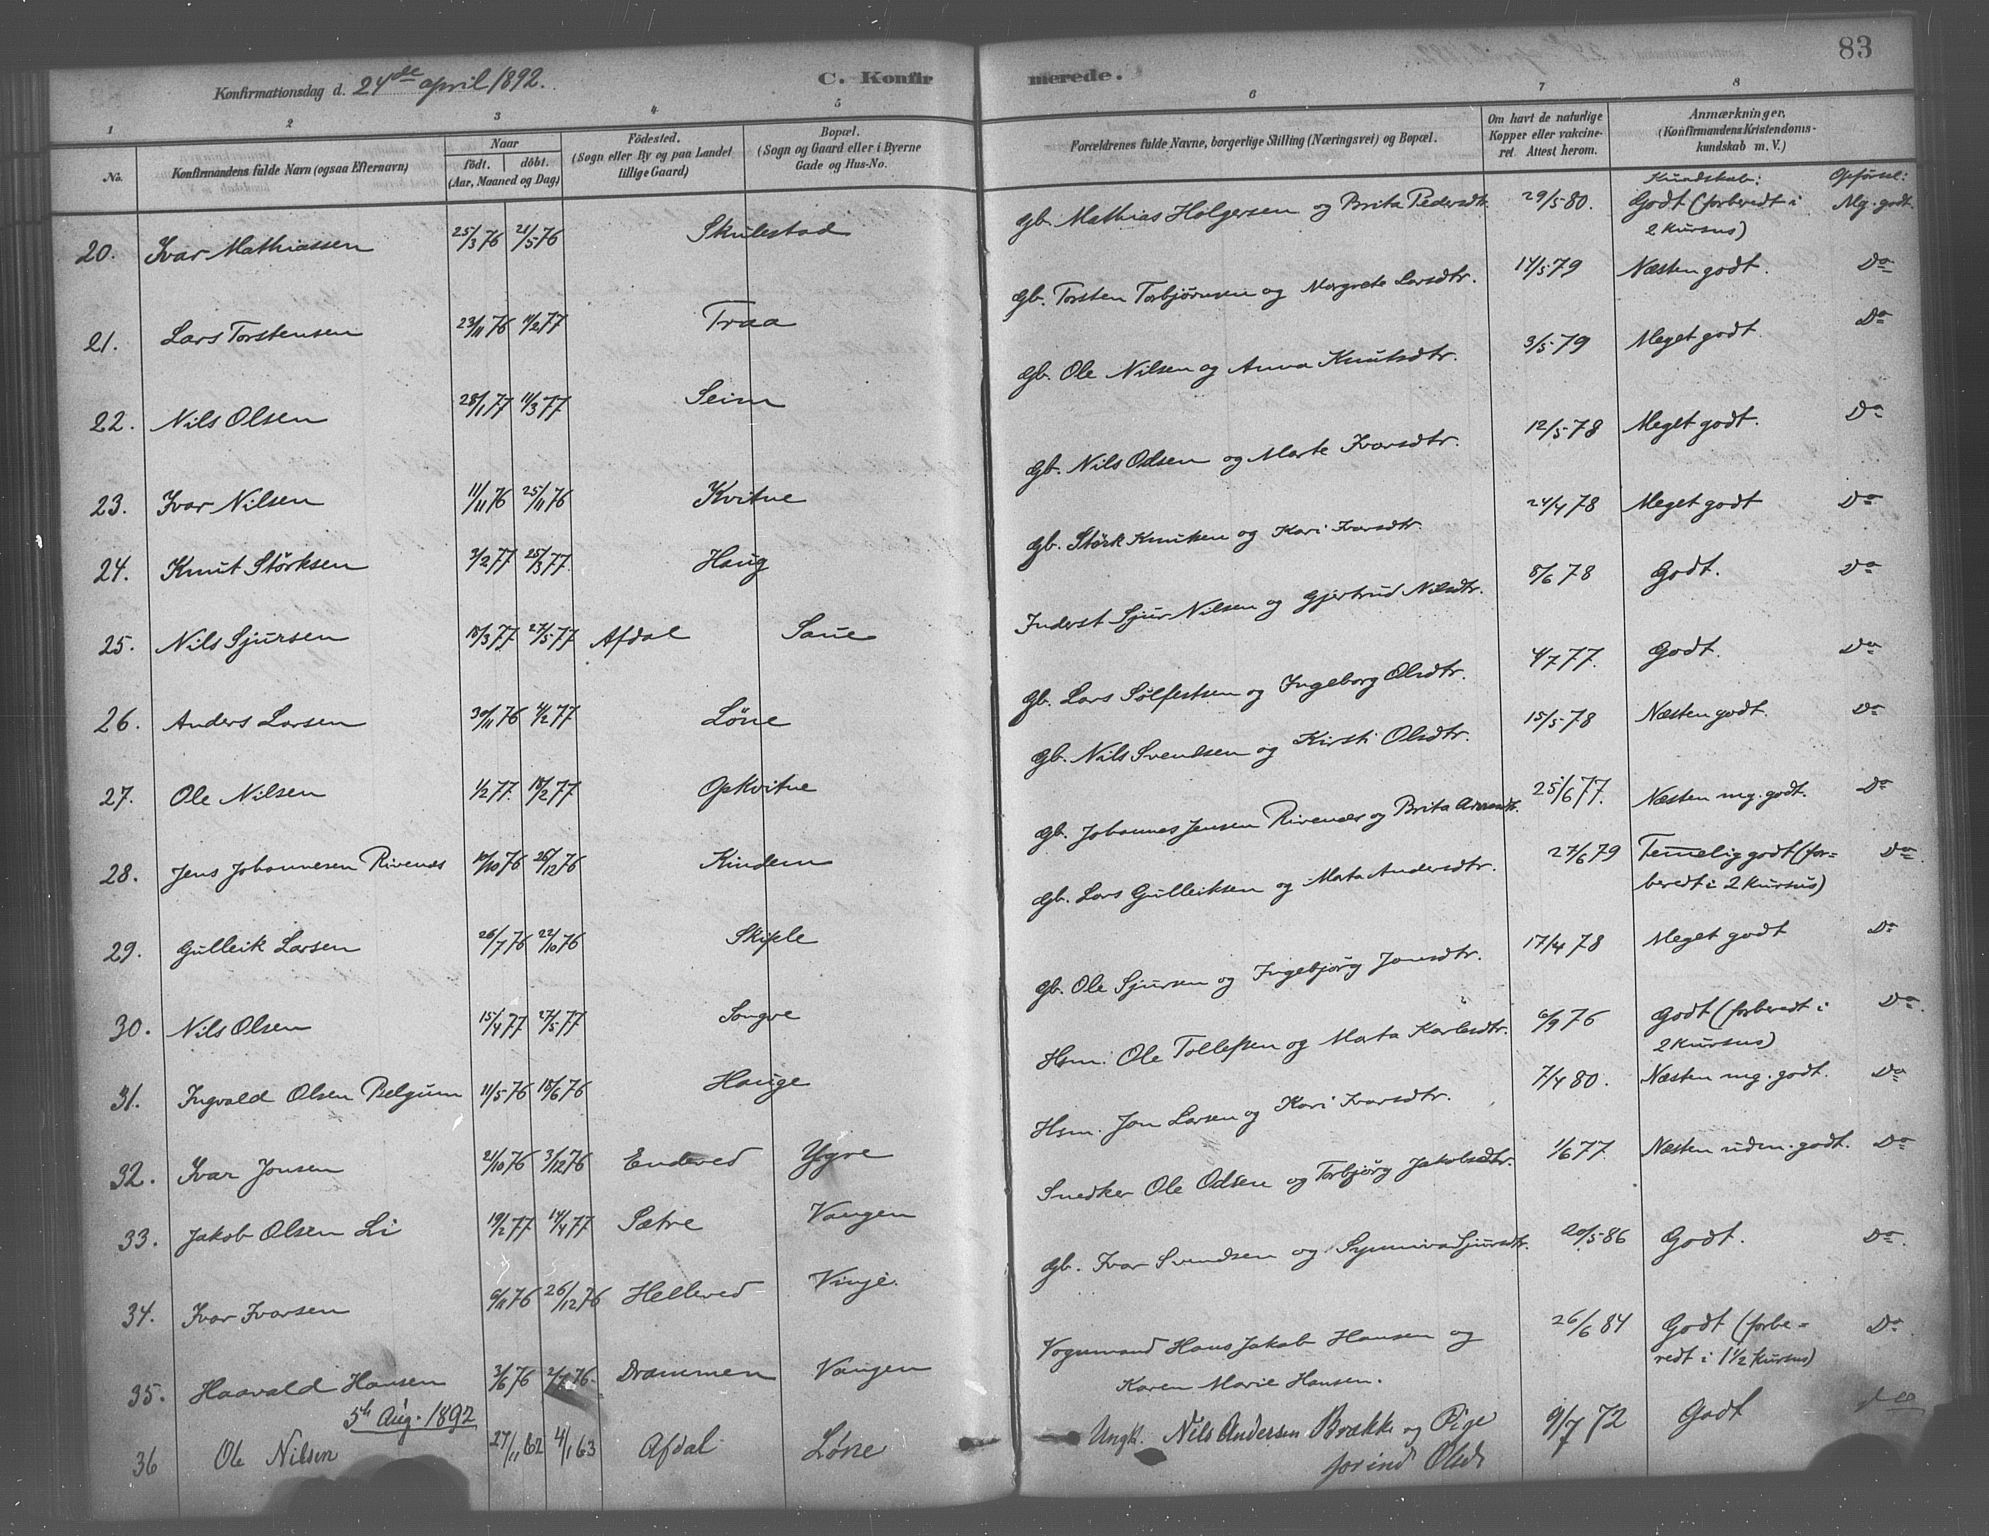 83
Konfirmationsdag d. 24de april 1892. C. Konfirmerede.
1 2 3 4 5 6 7 8
No. Konfirmandens fulde Navn (ogsaa Efternavn) Naar födt. döbt. (Aar, Maaned og Dag) Födested. (Sogn eller By og paa Landet tillige Gaard) Bopæl. (Sogn og Gaard eller i Byerne Gade og Hus-No. Forældrenes fulde Navne, borgerlige Stilling (Næringsvei) og Bopæl. Om havt de naturlige Kopper eller vakcineret. Attest herom. Anmærkninger. (Konfirmandens Kristendomskundskab m. V.)
Kundskab: Opførsel:
20. Ivar Mathiassen 25/3 76 21/5 76 Skulestad Gb. Mathias Holgersen og Brita Pedersdtr. 29/5 80. Godt (forberedt i Mg. godt.
2 Kursus)
21. Lars Torstensen 23/11 76 11/2 77 Traa Gb. Torsten Torbjørnsen og Margrete Larsdtr. 14/5 79 Næsten godt. Do
22. Nils Olsen 28/1 77 11/3 77 Seim Gb. Ole Nilsen og Anna Knutsdtr. 3/5 79 Meget godt. Do
23. Ivar Nilsen 11/11 76 25/11 76 Kvitne Gb. Nils Odsen og Marte Ivarsdtr. 12/5 78 Meget godt. Do
24. Knut Størksen 3/2 77 25/3 77. Haug Gb. Størk Knutsen og Kari Ivarsdtr. 24/4 78 Meget godt Do
25. Nils Sjursen 18/3 77 27/5 77 Afdal Saue Inderst Sjur Nilsen og Gjertrud Nilsdtr. 8/6 78 Godt. Do
26. Anders Larsen 30/11 76 4/2 77 Løne Gb. Lars Sølfestsen og Ingeborg Olsdtr. 4/7 77. Godt. Do
27. Ole Nilsen 1/2 77. 18/2 77 Opkvitne Gb. Nils Svendsen og Kirsti Olsdtr. 15/5 78 Næsten godt. Do
28. Jens Johannesen Rivenæs 10/10 76 26/12 76 Kindem Gb. Johannes Jensen Rivenæs og Brita 25/6 77. Næsten mg. godt. Do
29. Gulleik Larsen 26/7 76 22/10 76 Skiple Gb. Lars Gulleiksen og Marta Andersdtr. 27/6 79 Temmelig godt (for- Do
beredt i 2 Kursus)
30. Nils Olsen 15/4 77 27/5 77 Songve Gb. Ole Sjursen og Ingebjørg Jonsdtr. 17/4 78 Meget godt Do
31. Ingvald Olsen Belgum 11/5 76 18/6 76 Hauge Hsm. Ole Tollefsen og Marta Karlsdtr. 6/9 76 Godt (forberedt i Do
2 Kursus)
32. Ivar Jonsen 21/10 76 3/12 76 Endeved Ygre Hsm. Jon Larsen og Kari Ivarsdtr. 7/4 80. Næsten mg. godt. Do
33. Jakob Olsen Li 19/2 77 14/4 77 Sætre Vangen Snedker Ole Odsen og Torbjørg Jakobsdtr. 1/6 77 Næsten udm. godt. Do
34. Ivar Ivarsen 6/11 76 26/12 76 Helleved Vinje. Gb. Ivar Svendsen og Synneva Sjursdtr. 20/5 86 Godt. Do
35. Haavald Hansen 3/6 76 Drammen Vangen Vognmand Hans Jakob Hansen og 26/6 84 Godt (forbe- Do
Karen Marie Hansen. redt i 1½ Kursus)
5th Aug. 1892
36 Ole Nilsen 27/11 62 4/1 63 Afdal Løne Ungk. Nils Andersen Brække og Pige 9/7 72 Godt do
Jorind Olsdr